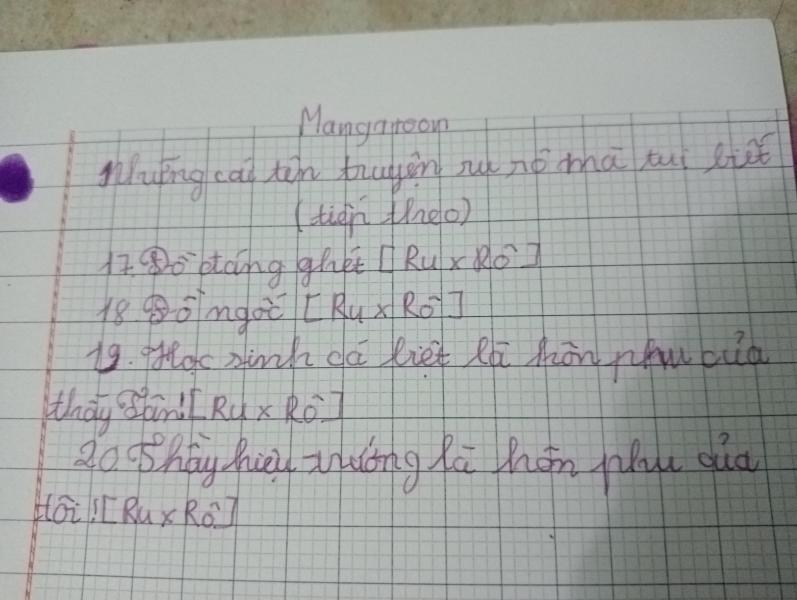 Mangaroon
Những cái tên truyện ru rô mà tui biết
(tiếp theo)
17. Đồ đáng ghét [Ru x Rô]
18 Đồ ngốc [Ru x Rô]
19. Học sinh cá biệt là hôn phu của
thầy Dân! [Ru x Rô]
20 Thầy hiệu trưởng là hôn phu của
tôi! [Ru x Rô]